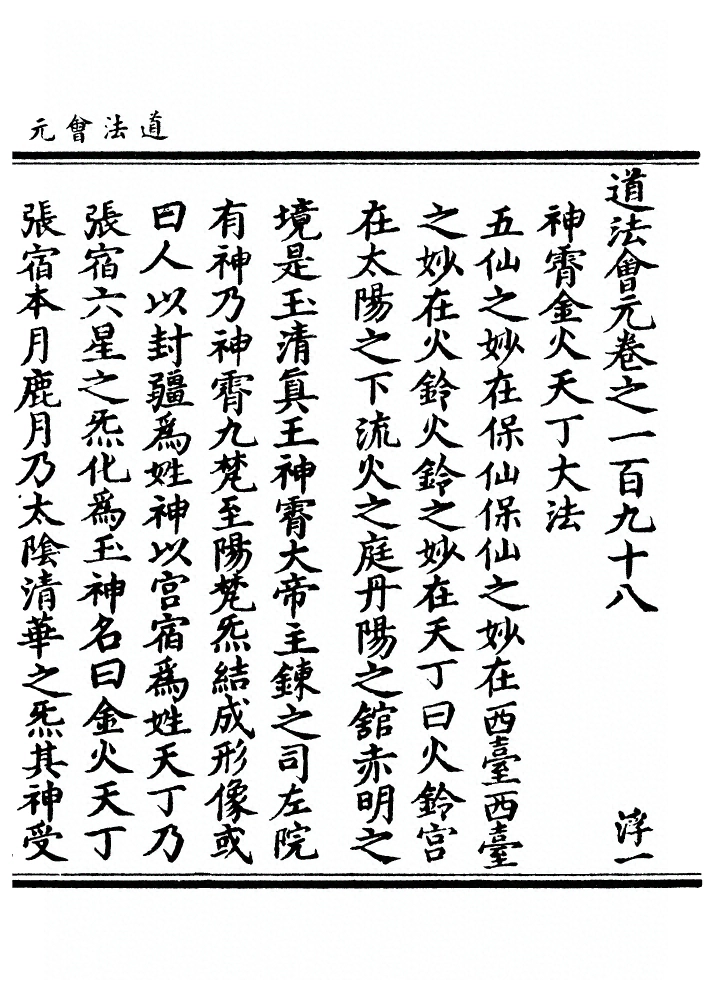 道法會元
道法會元卷之一百九十八 浮一
神霄金火天丁大法
五仙之妙在保仙保仙之妙在西臺西臺
之妙在火鈴火鈴之妙在天丁曰火鈴宮
在太陽之下流火之庭丹陽之舘赤明之
境是玉清真王神霄大帝主鍊之司左院
有神乃神霄九梵至陽梵炁結成形像或
曰人以封疆為姓神以宮宿為姓天丁乃
張宿六星之炁化為玉神名曰金火天丁
張宿本月鹿月乃太陰清華之炁其神受